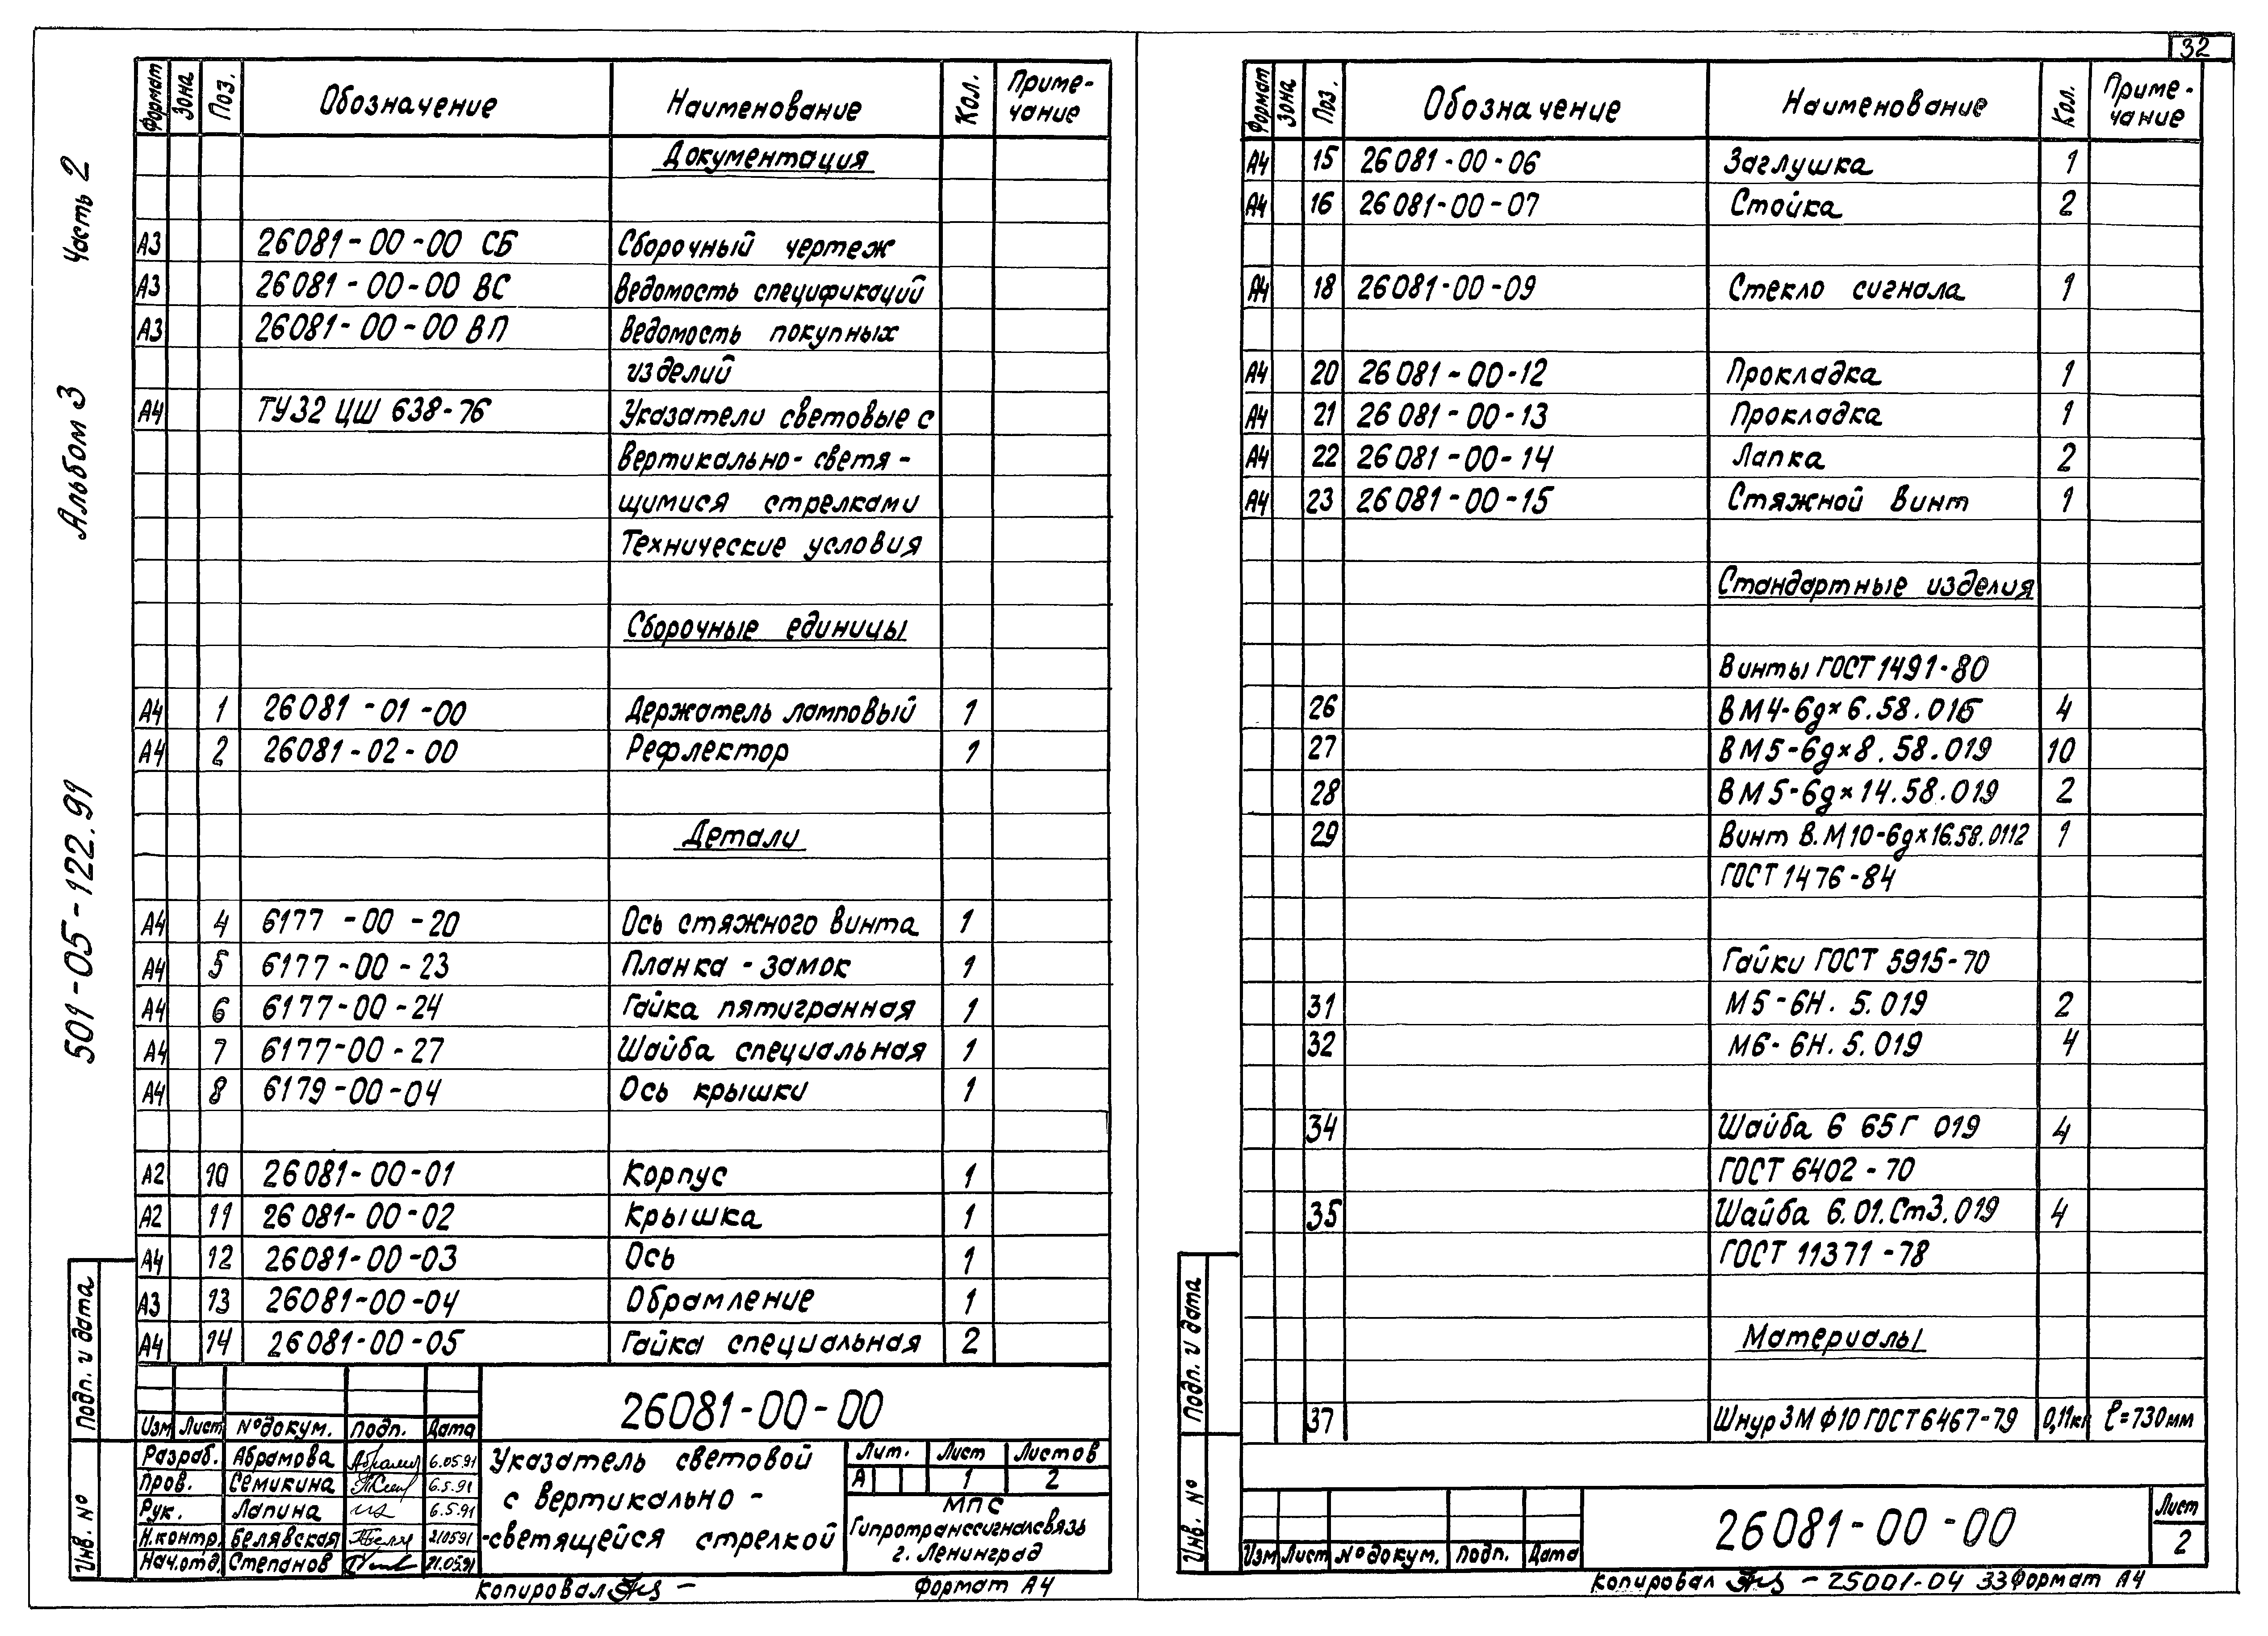 32
Часть 2
Альбом 3
501-05-122.91
Формат Зона Поз. Обозначение Наименование Кол. Приме-
чание
Документация
А3 26081-00-00 СБ Сборочный чертеж
А3 26081-00-00 ВС Ведомость спецификаций
А3 26081-00-00 ВП Ведомость покупных
изделий
А4 ТУ32 ЦШ 638-76 Указатели световые с
вертикально-светя-
щимися стрелками
Технические условия
Сборочные единицы
А4 1 26081-01-00 Держатель ламповый 1
А4 2 26081-02-00 Рефлектор 1
Детали
А4 4 6177-00-20 Ось стяжного винта 1
А4 5 6177-00-23 Планка-замок 1
А4 6 6177-00-24 Гайка пятигранная 1
А4 7 6177-00-27 Шайба специальная 1
А4 8 6179-00-04 Ось крышки 1
А2 10 26081-00-01 Корпус 1
А2 11 26081-00-02 Крышка 1
А4 12 26081-00-03 Ось 1
А3 13 26081-00-04 Обрамление 1
А4 14 26081-00-05 Гайка специальная 2
Подп. и дата
Инв. №
26081-00-00
Изм Лист № докум. Подп. Дата
Разраб. Абрамова 6.05.91
Пров. Семикина 6.5.91
Рук. Лапина 6.5.91
Н.контр. Белявская 21.05.91
Нач.отд. Степанов 21.05.91
Указатель световой
с вертикально-
-светящейся стрелкой
Лит. Лист Листов
А 1 2
МПС
Гипротранссигналсвязь
г. Ленинград
Копировал
Формат А4
Формат Зона Поз. Обозначение Наименование Кол. Приме-
чание
А4 15 26081-00-06 Заглушка 1
А4 16 26081-00-07 Стойка 2
А4 18 26081-00-09 Стекло сигнала 1
А4 20 26081-00-12 Прокладка 1
А4 21 26081-00-13 Прокладка 1
А4 22 26081-00-14 Лапка 2
А4 23 26081-00-15 Стяжной винт 1
Стандартные изделия
Винты ГОСТ 1491-80
26 ВМ4-6g×6.58.016 4
27 ВМ5-6g×8.58.019 10
28 ВМ5-6g×14.58.019 2
29 Винт В.М10-6g×16.58.0112 1
ГОСТ 1476-84
Гайки ГОСТ 5915-70
31 М5-6Н.5.019 2
32 М6-6Н.5.019 4
34 Шайба 6 65Г 019 4
ГОСТ 6402-70
35 Шайба 6.01.Ст3.019 4
ГОСТ 11371-78
Материалы
37 Шнур 3М Ф10 ГОСТ 6467-79 0,11кг ℓ=730мм
Подп. и дата
Инв. №
Изм Лист № докум. Подп. Дата
26081-00-00
Лист
2
Копировал - 25001-04 33 Формат А4